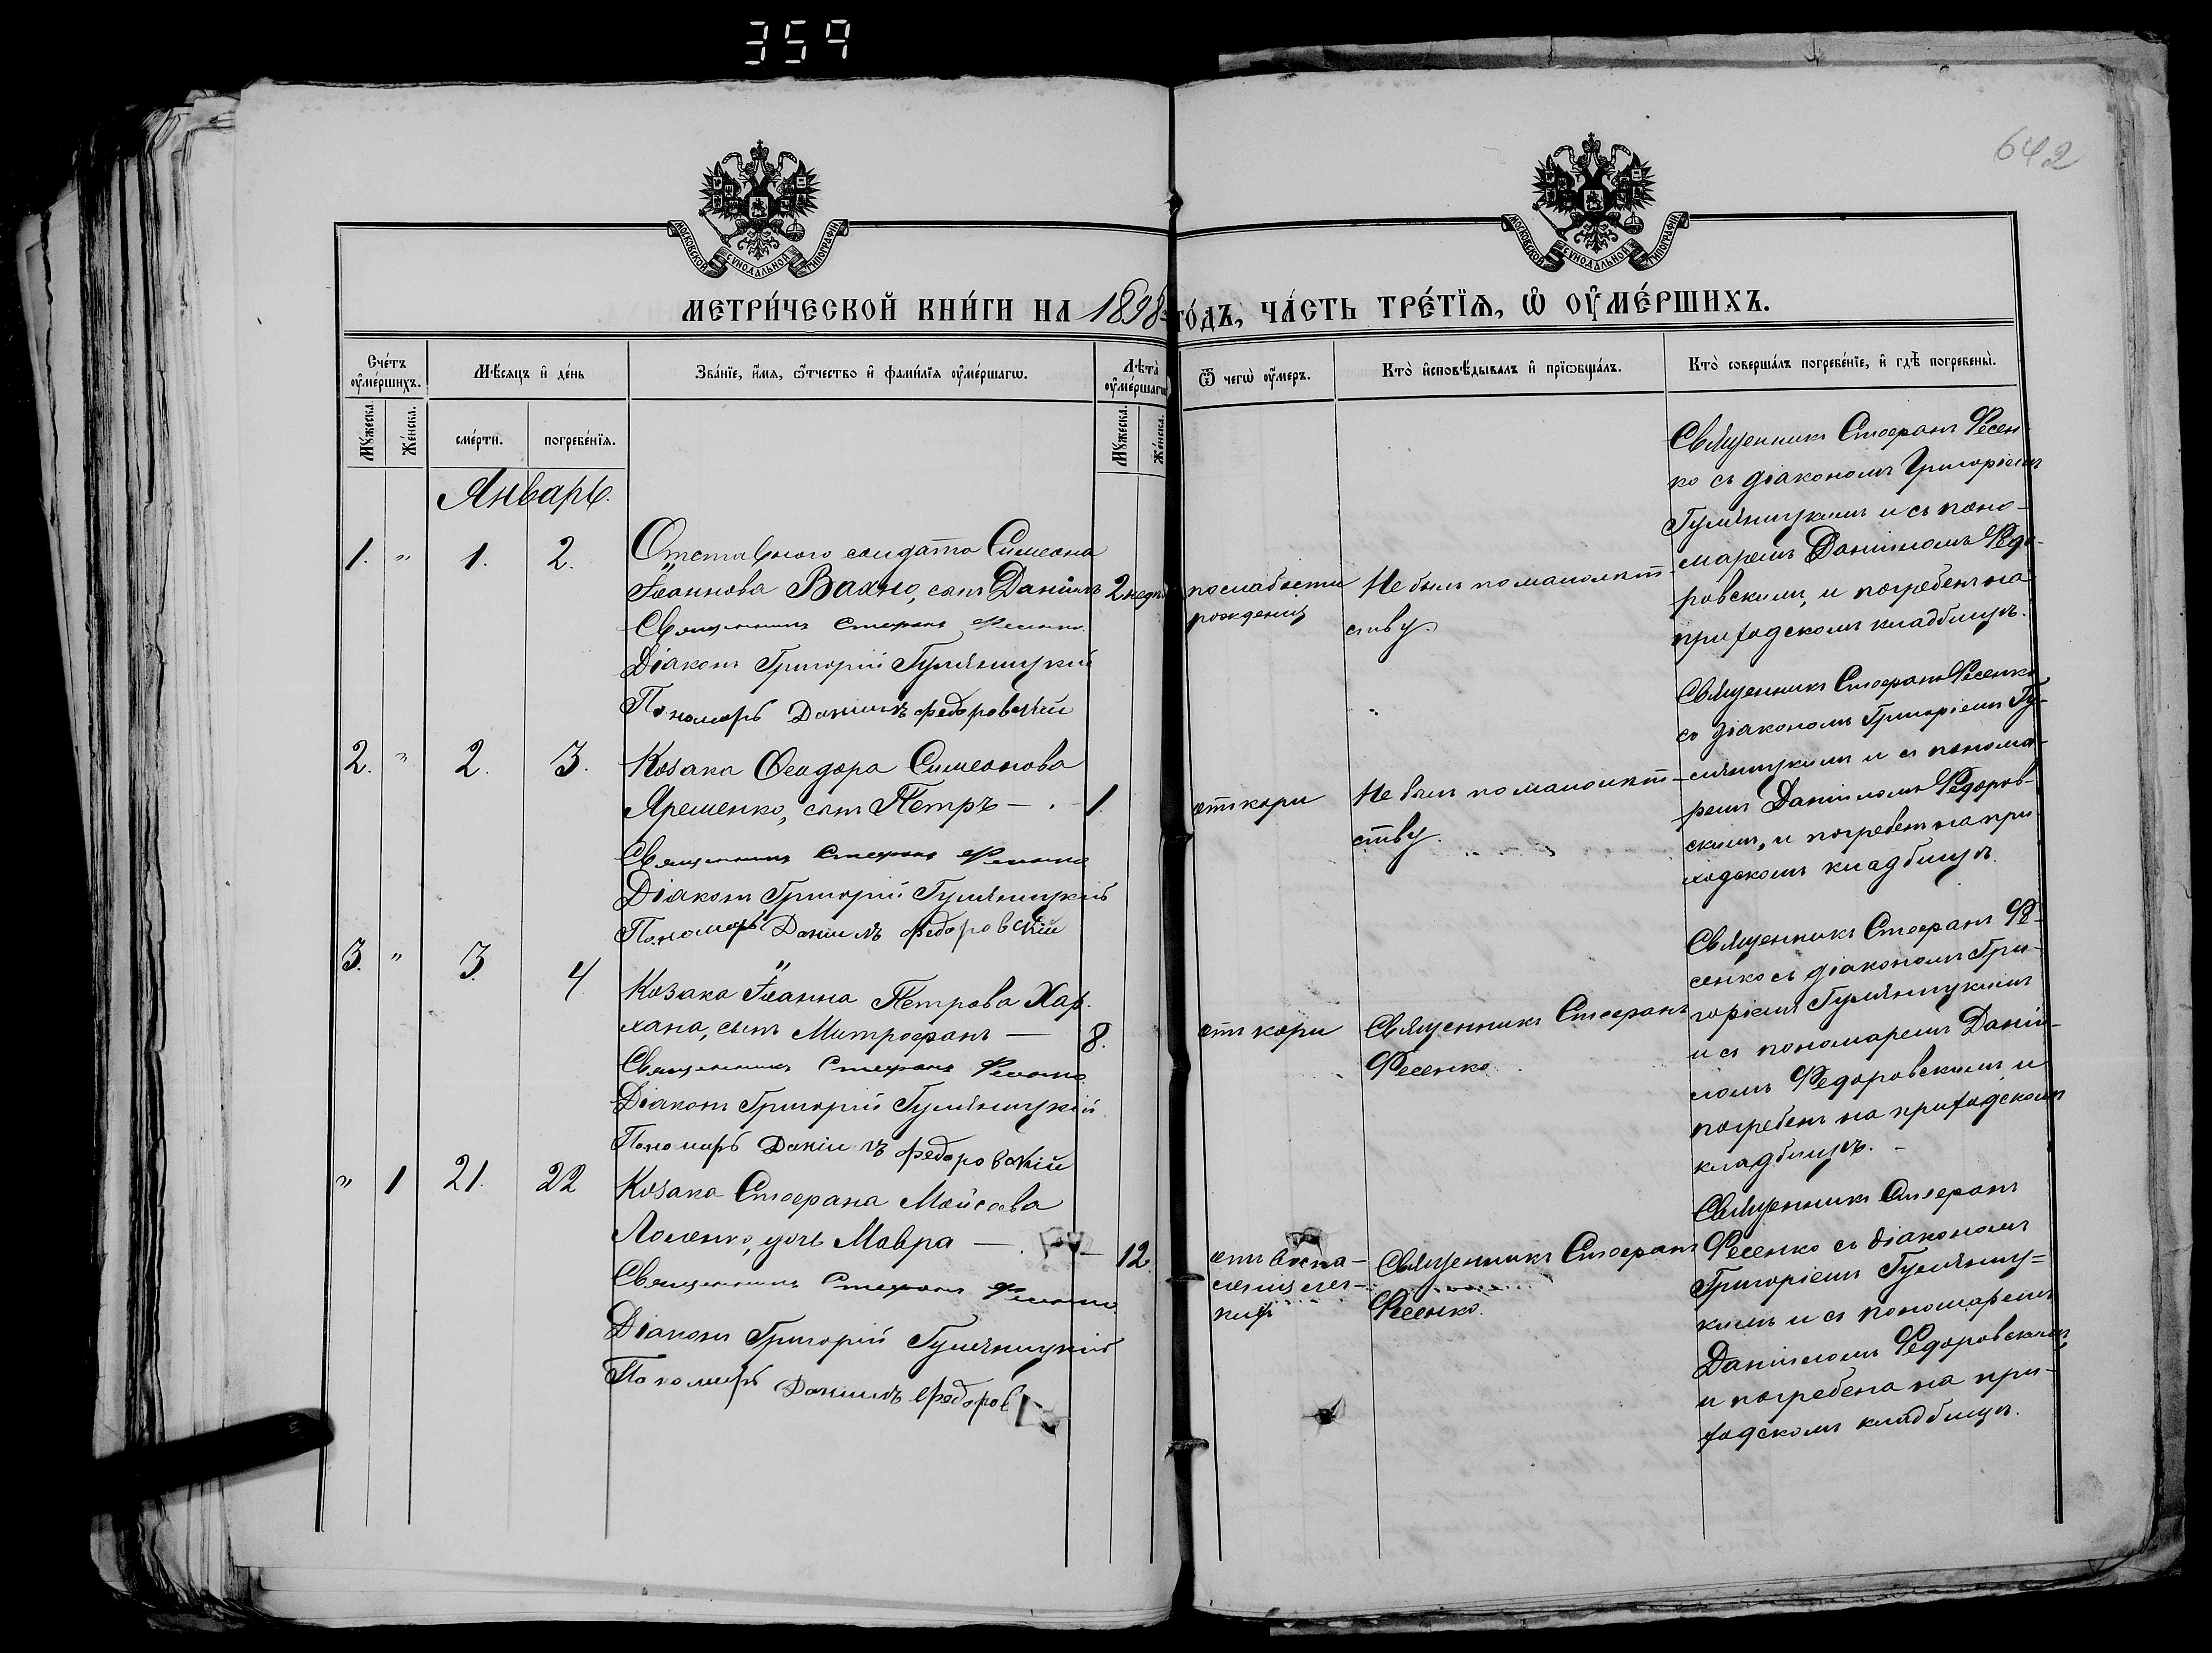 359
642
МОСКОВСКОЙ СѴНОДАЛЬНОЙ ТИПОГРАФІИ
МОСКОВСКОЙ СѴНОДАЛЬНОЙ ТИПОГРАФІИ
МЕТРИ́ЧЕСКОЙ КНИ́ГИ НА 1898 го́дъ, ЧА́СТЬ ТРЕ́ТЇѦ, Ѡ҆ ОУ҆МЕ́РШИХЪ.
Сче́тъ оу҆ме́ршихъ.
Мꙋжеска.
Же́нска.
Мѣ́сѧцъ и҆ де́нь
сме́рти.
погребе́нїѧ.
Зва́нїе, и҆́мѧ, ѻ҆́тчество и҆ фами́лїѧ оу҆ме́ршагѡ.
Лѣта̀ оу҆ме́ршагѡ
Мꙋжеска.
Же́нска.
Ѿ чегѡ̀ оу҆́меръ.
Кто̀ и҆сповѣ́дывалъ и҆ прїѡбща́лъ.
Кто̀ соверша́лъ погребе́нїе, и҆ гдѣ̀ погребены̀.
Январь.
1. " 1. 2.
Отставного солдата Симеона
Іоаннова Вахно, сынъ Даніилъ 2 недѣ
Священникъ Стефанъ Фесенко
Діаконъ Григорій Гумѣницкій
Пономарь Даніилъ Федоровскій
по слабости
рожденія
Не былъ по малолѣт-
ству.
Священникъ Стефанъ Фесен-
ко съ діакономъ Григоріемъ
Гумѣницкимъ и съ поно-
маремъ Даніиломъ Ѳедо-
ровскимъ, и погребенъ на
приходскомъ кладбищѣ.
2. " 2. 3.
Козака Ѳеодора Симеонова
Яременко, сынъ Петръ — . — 1.
Священникъ Стефанъ Фесенко
Діаконъ Григорій Гумѣницкій
Пономарь Даніилъ Федоровскій
отъ кори
Не былъ по малолѣт-
ству.
Священникъ Стефанъ Фесенко
съ діакономъ Григоріемъ Гу-
мѣницкимъ и съ понома-
ремъ Даніиломъ Ѳедоров-
скимъ, и погребенъ на при-
ходскомъ кладбищѣ.
3. " 3. 4.
Козака Іоанна Петрова Хар-
хана, сынъ Митрофанъ — 8.
Священникъ Стефанъ Фесенко
Діаконъ Григорій Гумѣницкій
Пономарь Даніилъ Федоровскій
отъ кори
Священникъ Стефанъ
Фесенко.
Священникъ Стефанъ Фе-
сенко съ діакономъ Гри-
горіемъ Гумѣницкимъ
и съ пономаремъ Даніи-
ломъ Ѳедоровскимъ, и
погребенъ на приходскомъ
кладбищѣ. -
" 1 21. 22
Козака Стефана Мойсеева
дочь Мавра — 12.
Священникъ Стефанъ Фесенко
Діаконъ Григорій Гумѣницкій
Пономарь Даніилъ Федоров
отъ воспа-
ленія лег-
кихъ
Священникъ Стефанъ
Фесенко.
Священникъ Стефанъ
Фесенко съ діакономъ
Григоріемъ Гумѣниц=
кимъ и съ пономаремъ
Даніиломъ Ѳедоровскимъ,
и погребена на при-
ходскомъ кладбищѣ.